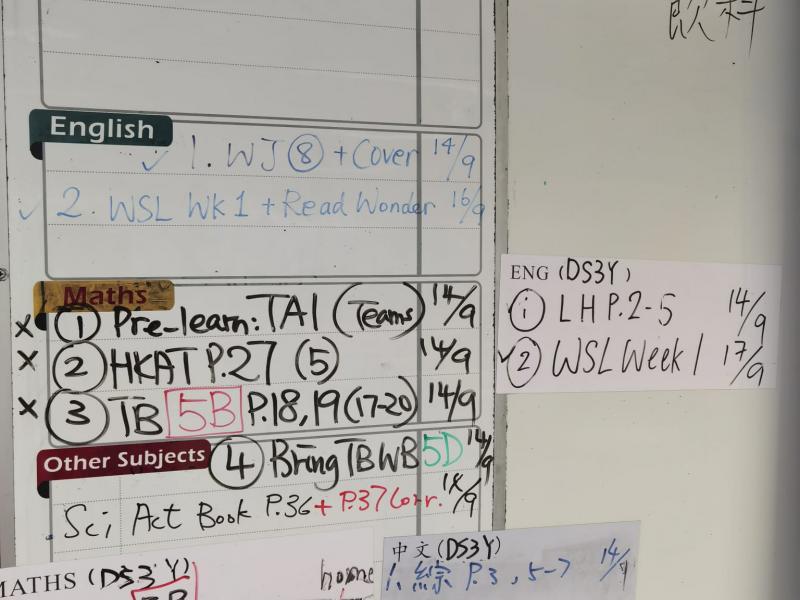 飲料
English
✓ 1. WJ ⑧ + Cover 14/9
✓ 2. WSL WK 1 + Read Wonder 16/9
Maths
x ① Pre-learn: TA1 (Teams) 14/9
x ② HKAT P.27 (5) 14/9
x ③ TB 5B P.18, 19 (17-20) 14/9
Other Subjects
④ Bring TB WB 5D 14/9
. Sci Act Book P.36 + P.37 Corr. /9
ENG (DS3Y)
① LH P.2-5 14/9
✓② WSL Week 1 17/9
MATHS (DS3Y) home
中文 (DS3Y)
1. 綜 P.3, 5-7 14/9